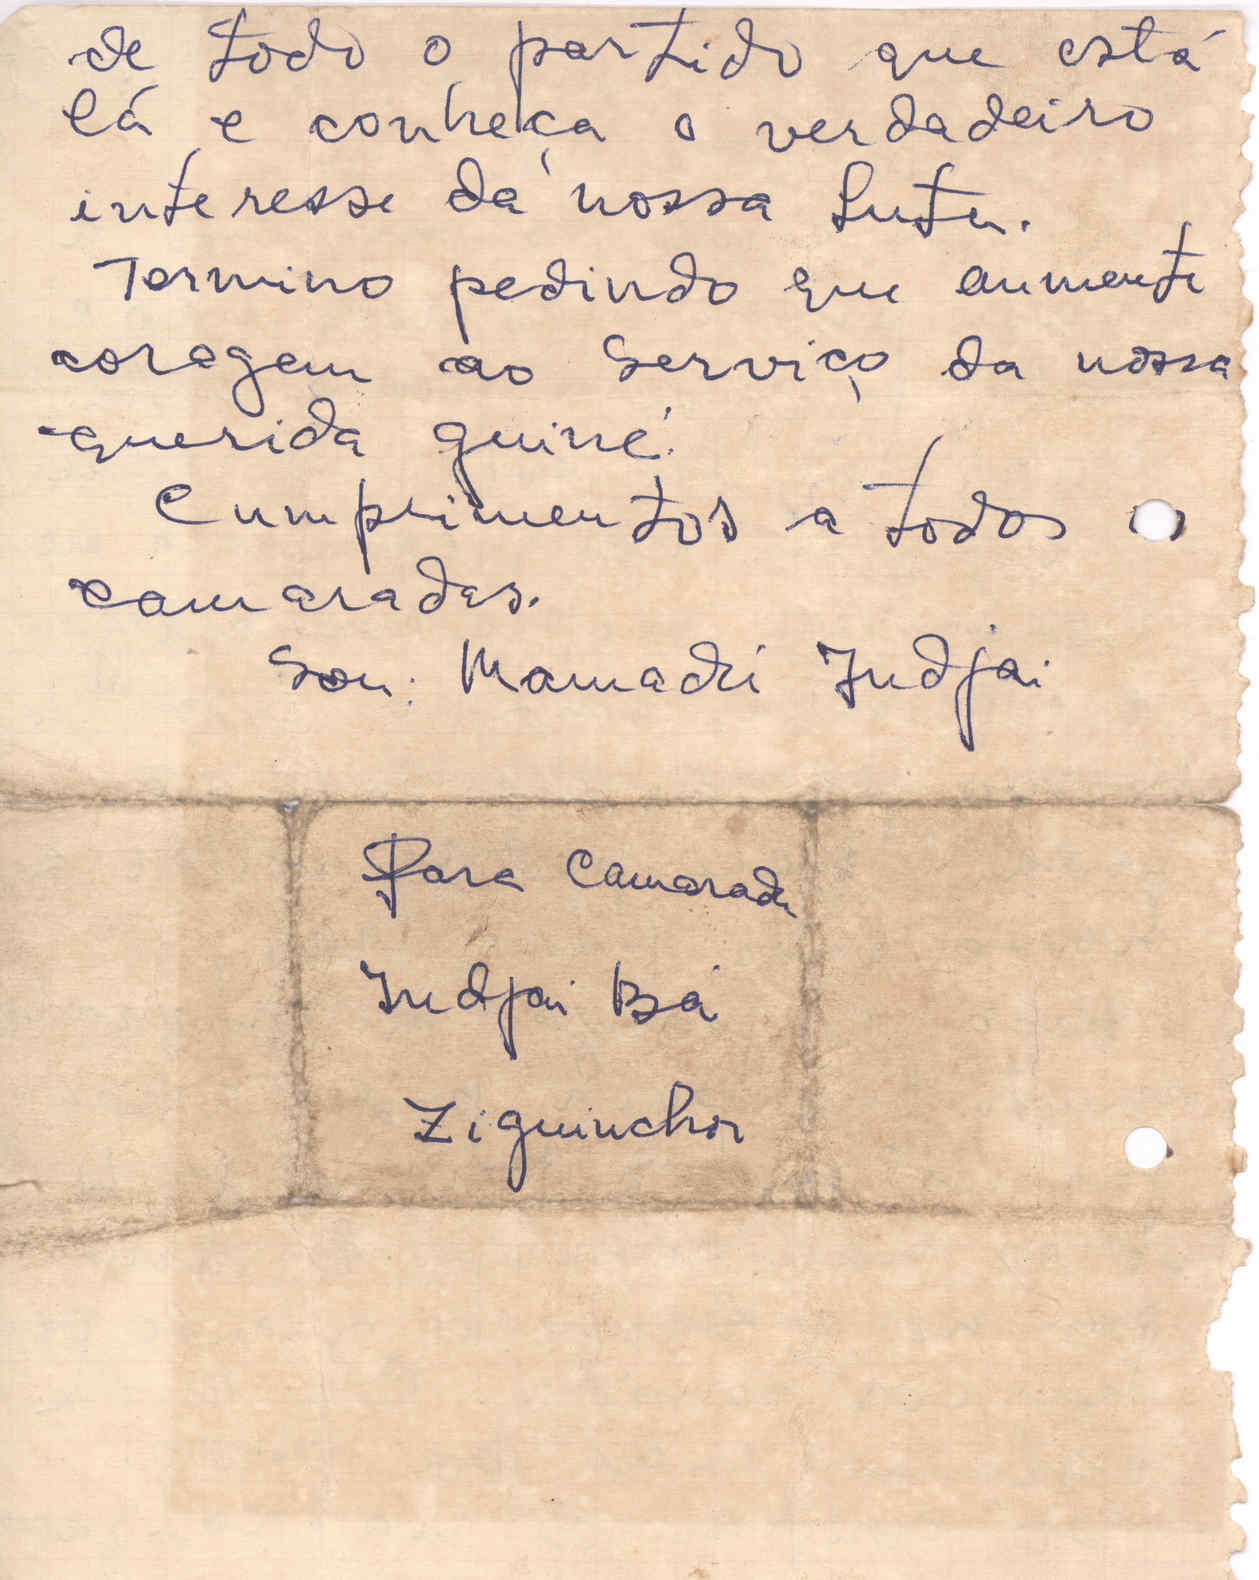 de todo o partido que está
lá e conheça o verdadeiro
interesse da nossa luta.
Termino pedindo que aumente
coragem ao serviço da nossa
querida guiné.
Cumprimentos a todos os
camaradas.
Sou: Mamadú Indjai
Para Camarada
Indjai Bá
Ziguinchor